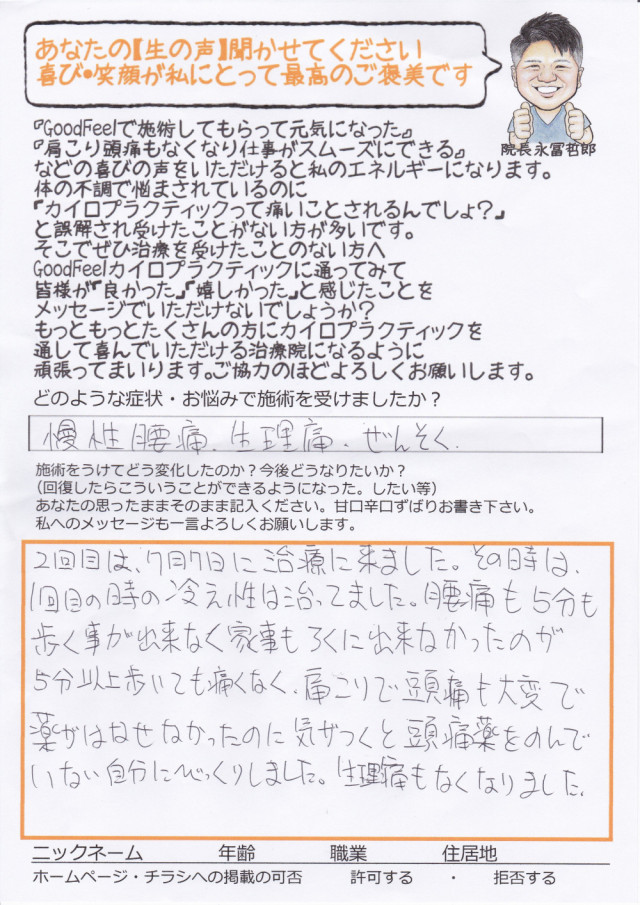 あなたの【生の声】聞かせてください
喜び・笑顔が私にとって最高のご褒美です
院長永冨哲郎
『GoodFeelで施術してもらって元気になった』
『肩こり頭痛もなくなり仕事がスムーズにできる』
などの喜びの声をいただけると私のエネルギーになります。
体の不調で悩まされているのに
「カイロプラクティックって痛いことされるんでしょ？」
と誤解され受けたことがない方が多いです。
そこでぜひ治療を受けたことのない方へ
GoodFeelカイロプラクティックに通ってみて
皆様が「良かった」「嬉しかった」と感じたことを
メッセージでいただけないでしょうか？
もっともっとたくさんの方にカイロプラクティックを
通して喜んでいただける治療院になるように
頑張ってまいります。ご協力のほどよろしくお願いします。
どのような症状・お悩みで施術を受けましたか？
慢性腰痛、生理痛、ぜんそく
施術をうけてどう変化したのか？今後どうなりたいか？
（回復したらこういうことができるようになった。したい等）
あなたの思ったままそのまま記入ください。甘口辛口ずばりお書き下さい。
私へのメッセージも一言よろしくお願いします。
2回目は、7月7日に治療に来ました。その時は、
1回目の時の冷え性は治ってました。腰痛も5分も
歩く事が出来なく家事もろくに出来なかったのが
5分以上歩いても痛くなく、肩こりで頭痛も大変で
薬がはなせなかったのに気がつくと頭痛薬をのんで
いない自分にびっくりしました。生理痛もなくなりました。
ニックネーム 年齢 職業 住居地
ホームページ・チラシへの掲載の可否 許可する ・ 拒否する